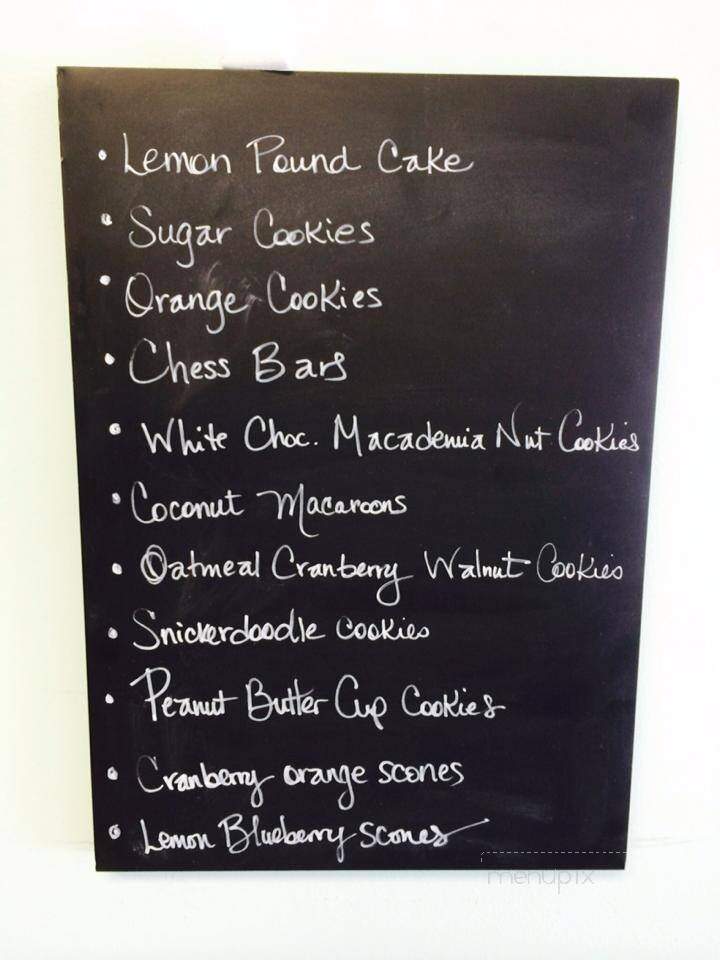 • Lemon Pound Cake
• Sugar Cookies
• Orange Cookies
• Chess Bars
• White Choc. Macademia Nut Cookies
• Coconut Macaroons
• Oatmeal Cranberry Walnut Cookies
• Snickerdoodle cookies
• Peanut Butter Cup Cookies
• Cranberry orange scones
• Lemon Blueberry scones
menupix